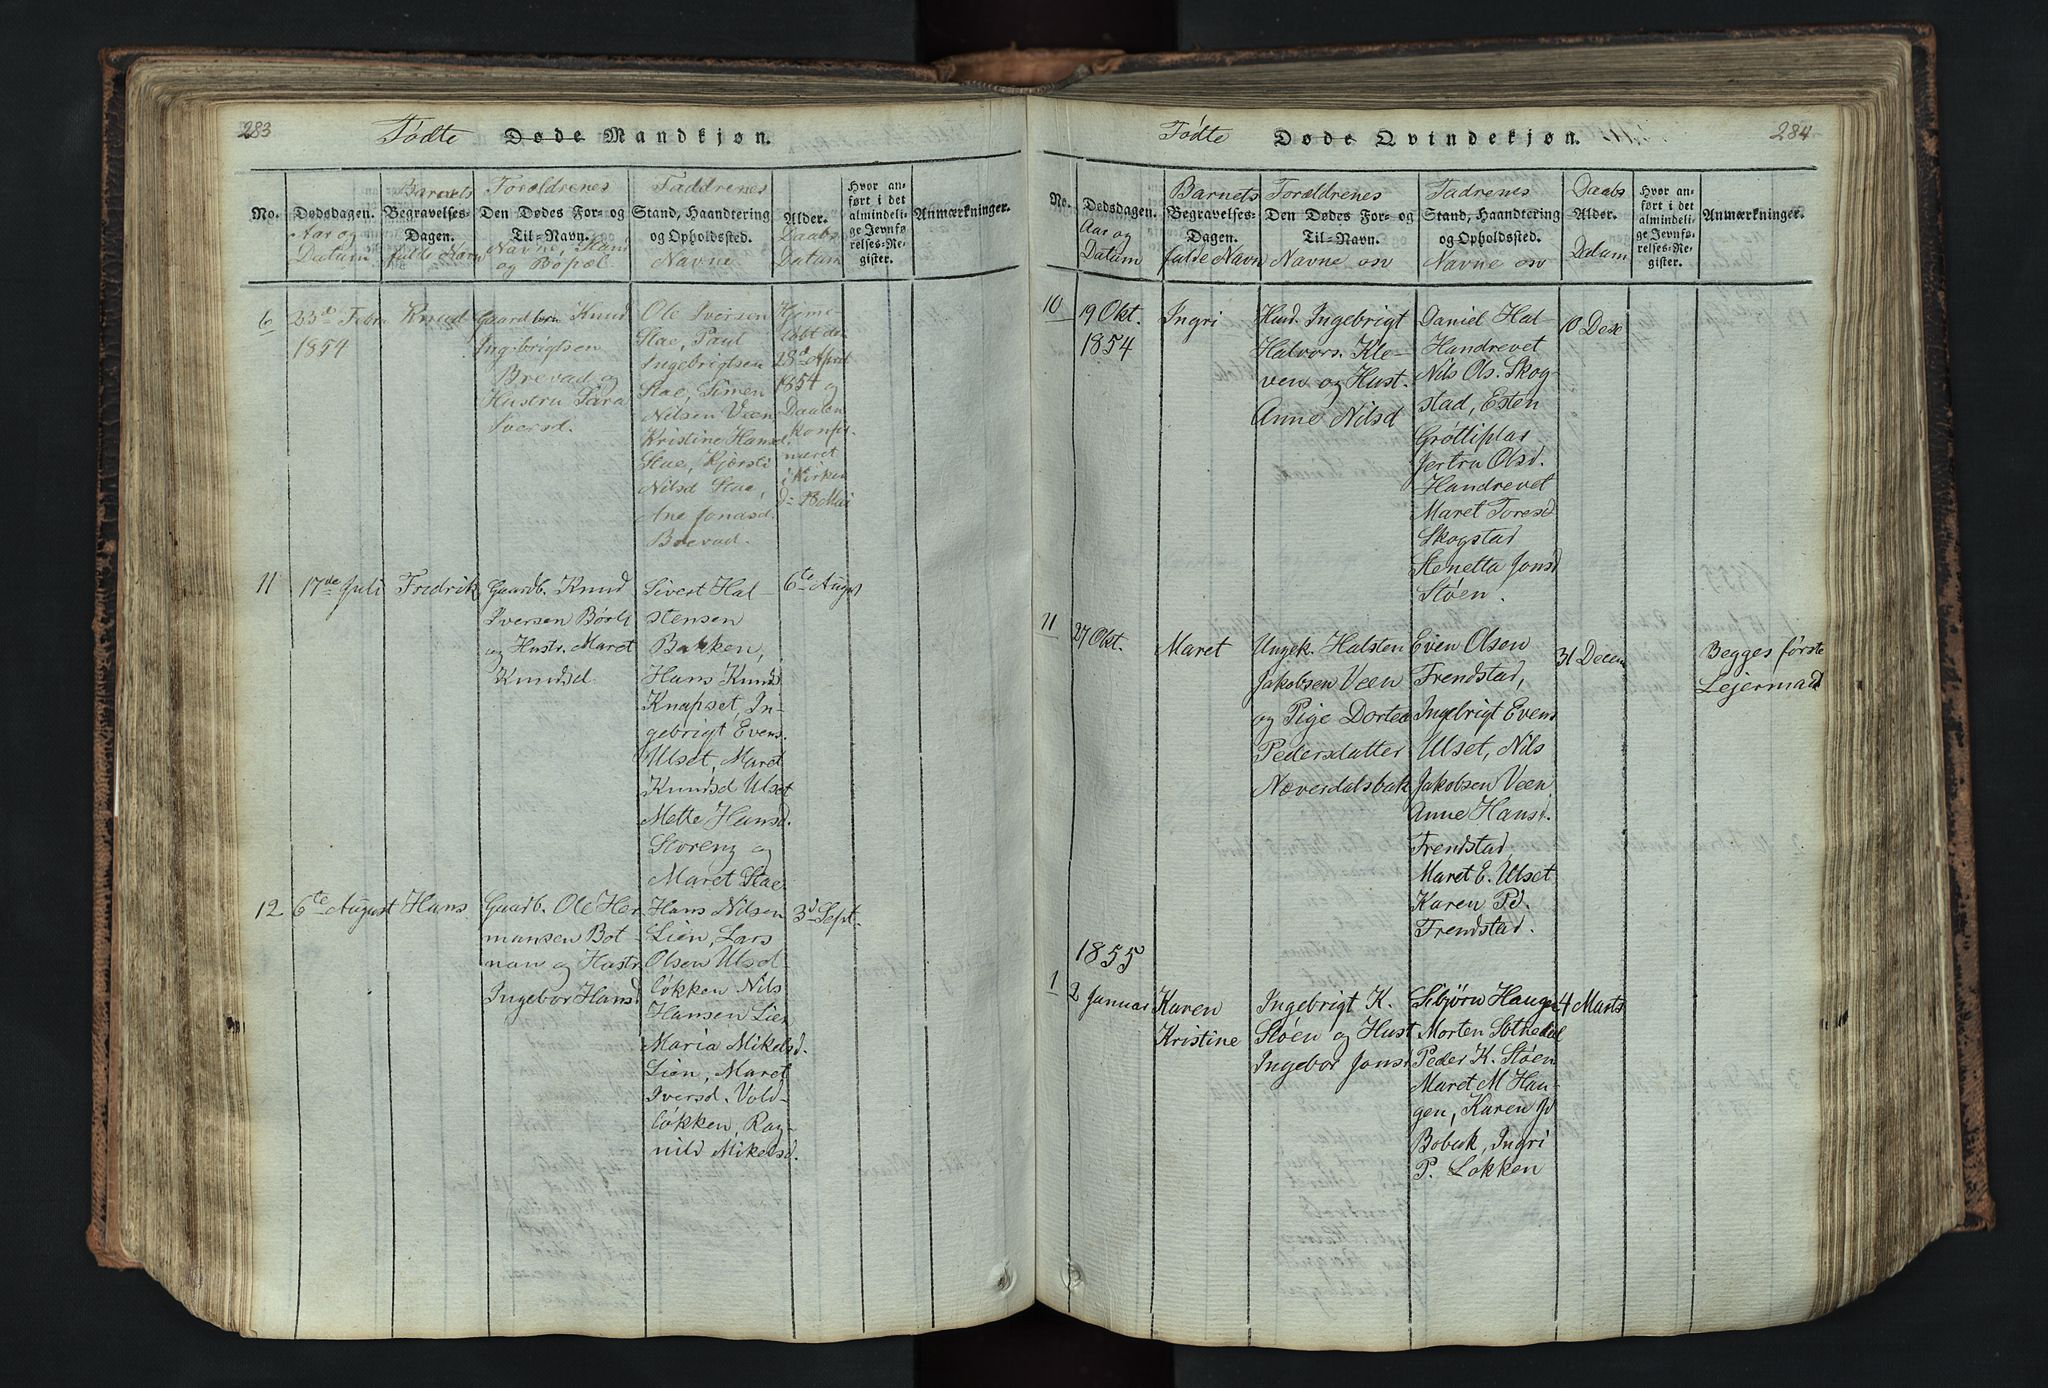 283
Fødte Døde Mandkjøn.
No.
Dødsdagen.
Aar og
Datum
Barnets
Begravelses-
Dagen.
fulde Navn
Forældrenes
Den Dødes For- og
Til-Navn.
Navne, Stand
og Bopæl
Faddrenes
Stand, Haandtering
og Opholdssted.
Navne
Alder.
Daabs
Datum
Hvor an-
ført i det
almindeli-
ge Jevnfø-
relses-Re-
gister.
Anmærkninger.
6
23de Febr
1854
Knud
Gaardbru Knud
Ingebrigtsen
Brevad og
Hustru
Iversd.
Ole Iversen
Stae, Paul
Ingebrigtsen
Stae, Simen
Nilsen Veen,
Kristine Hansd.
Stae, Kjersti
Nilsd Stae,
Ane Jonasd.
Brevad.
Hjeme
døbt den
28d April
1854 og
Daaben
konfir-
meret
i Kirken
d= 28 Mai
11
17de Juli
Fredrik
Gaardb. Knud
Iversen
og Hustr. Maret
Knudsd.
Sivert Hal-
stensen
Bakken,
Hans Knuds
Knapset, In-
gebrigt Evens.
Ulset, Maret
Knudsd Ulset
Mette Hansd.
Storeng og
Maret Stae
6te August
12
6te August
Hans
Gaardb. Ole Her
mansen Bot-
nan og Hustr.
Ingebor Hansd
Hans Nilsen
Lien, Lars
Olsen
løkken Nils
Hansen Lien
Maria Mikelsd.
Lien, Maret
Iversd. Vold-
løkken, Rag-
nild Mikelsd.
3d Sept.
284
Fødte Døde Qvindekjøn.
No.
Dødsdagen.
Aar og
Datum
Barnets
Begravelses-
Dagen.
fulde Navn
Forældrenes
Den Dødes For- og
Til-Navn.
Navne osv
Fadrenes
Stand, Haandtering
og Opholdssted.
Navne osv
Daabs
Alder.
Datum
Hvor an-
ført i det
almindeli-
ge Jevnfø-
relses-Re-
gister.
Anmærkninger.
10
19 Okt.
1854
Ingri
Husm. Ingebrigt
Halvors. Kle-
ven og Hust.
Anne Nilsd
Daniel Hal-
Handrevet
Nils Ols. Skog-
stad, Esten
Grøttiplas
Jertru Olsd.
Handrevet
Maret Toresd
Skogstad
Stenetta Jonsd
Støen.
10 Dese
11
27 Okt.
Maret
Ungk. Halsten
Jakobsen Veen
og Pige Dortea
Pedersdatter
Næverdalsbak
Even Olsen
Frendstad,
Ingebrigt Evens
Ulset, Nils
Jakobsen Veen
Anne Hansd.
Frendstad
Maret E. Ulset
Karen Pd.
Frendstad.
31 Decem
Begges første
Lejermaal
1855
1
2 Januar
Karen
Kristine
Ingebrigt K.
Støen og Hust
Ingebor Jonsd
Esbjørn Haugen
Morten
Peder K. Støen
Maret M Hau-
gen, Karen Jd
Bobak, Ingri
P. Løkken
4 Marts